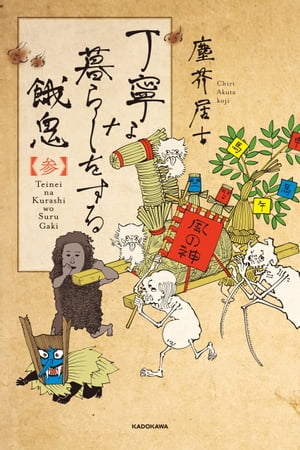 丁寧な
暮らしをする
餓鬼
【参】
Teinei
na
Kurashi
wo
Suru
Gaki
塵芥居士
Chiri
Akuta
koji
風の神
馬
午
馬
KADOKAWA